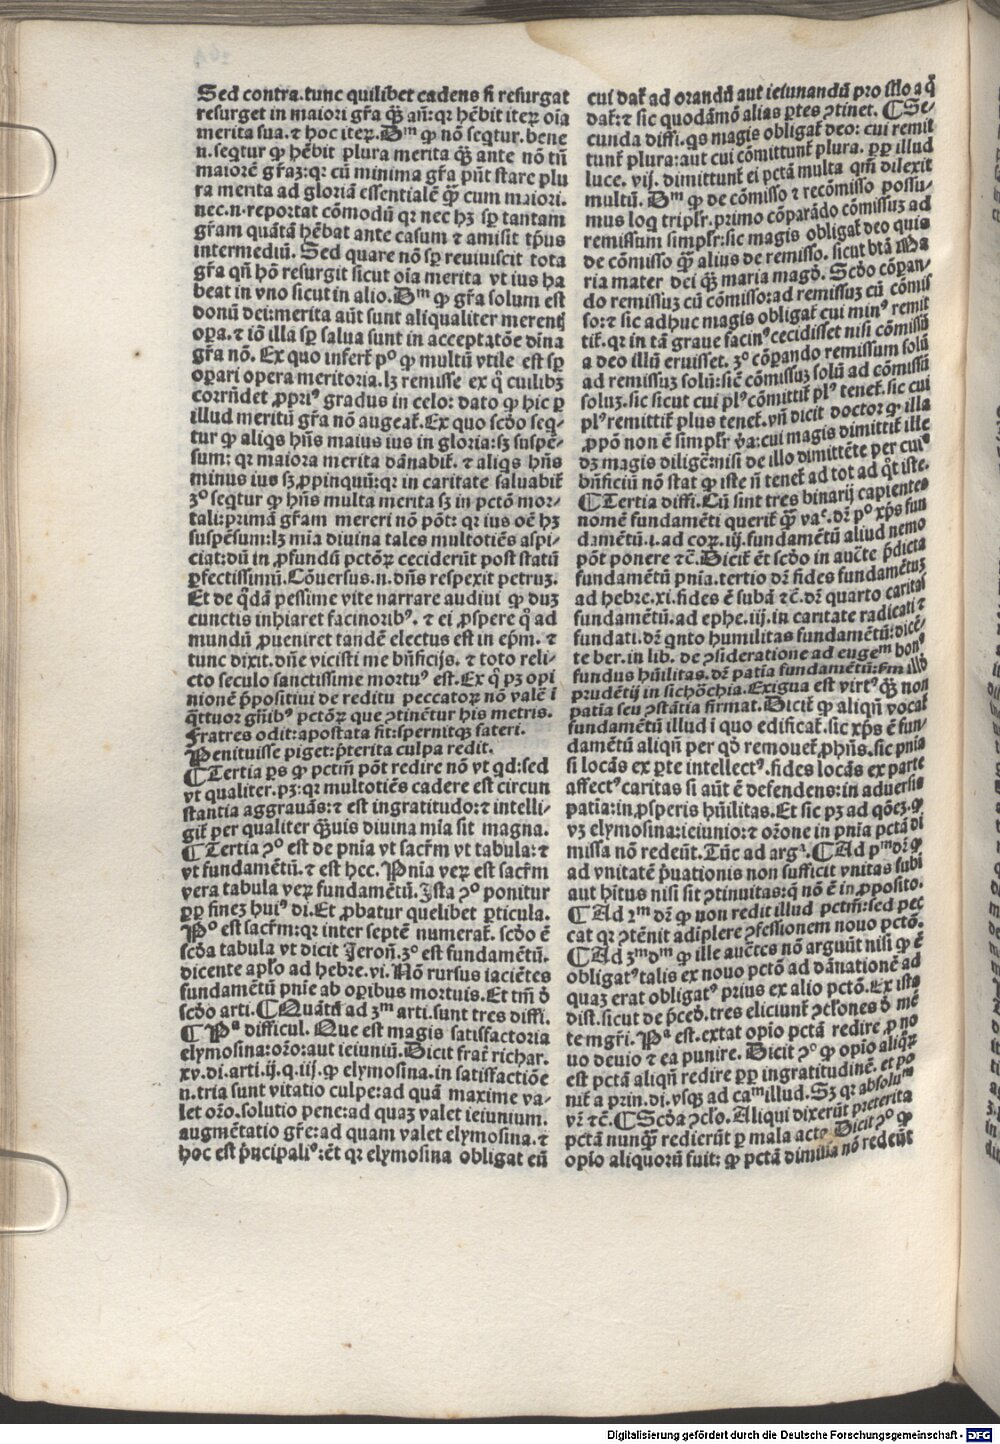 Sed contra.tunc quilibet cadens si resurgat
resurget in maiori gr̄a q̄ꝫ an̄:qꝛ hēbit iteꝝ oīa
merita sua.⁊ hoc iteꝝ.Dᵐ ꝙ nō seqtur.bene
n.seqtur ꝙ hēbit plura merita q̄ꝫ ante nō tn̄
maiorē gr̄aꝫ:qꝛ cū minima gr̄a pn̄t stare plu
ra merita ad gloriā essentialē q̄ꝫ cum maiori.
nec.n.reportat cōmodū qꝛ nec hꝫ sꝑ tantam
gr̄am quātā hēbat ante casum ⁊ amisit tp̄us
intermediū. Sed quare nō sꝑ reuiuiscit tota
gr̄a qn̄ hō resurgit sicut oīa merita vt ius ha
beat in vno sicut in alio.Dᵐ ꝙ gr̄a solum est
donū dei:merita aūt sunt aliqualiter merentꝭ
oꝑa.⁊ iō illa sꝑ salua sunt in acceptatōe diīna
gr̄a nō. Ex quo infert̄ pᵒ ꝙ multū vtile est sꝑ
oꝑari opera meritoria.lꝫ remisse ex q̊ cuilibꝫ
corrn̄det ꝓpriꝰ gradus in celo: dato ꝙ hic ꝑ
illud meritū gr̄a nō augeat̄.Ex quo scd̄o seq-
tur ꝙ aliqs hn̄s maius ius in gloria:sꝫ suspē-
sum: qꝛ maiora merita dānabit̄. ⁊ aliqs hn̄s
minus ius sꝫ ꝓpinquū:qꝛ in caritate saluabit̄
3ᵒ seqtur ꝙ hn̄s multa merita sꝫ in pctō mor-
tali:primā gr̄am mereri nō pōt: qꝛ ius oē hꝫ
suspēsum:lꝫ mīa diuina tales multotiēs aspi-
ciat:dū in ꝓfundū pctōꝝ ceciderūt post statū
ꝑfectissimū.Cōuersus.n.dn̄s respexit petruꝫ.
Et de q̊dā pessime vite narrare audiui ꝙ duꝫ
cunctis inhiaret facinoribꝰ.⁊ ei ꝓspere q̊ ad
mundū ꝓueniret tandē electus est in ep̄m. ⁊
tunc dixit.dn̄e vicisti me bn̄ficijs. ⁊ toto reli-
cto seculo sanctissime mortuꝰ est.Ex q̊ pꝫ opi
nionē p̄positiui de reditu peccatoꝝ nō valē ī
q̄ttuor gn̄ibꝰ pctōꝝ que ꝯtinētur his metris.
Fratres odit:apostata fit:spernitqꝫ fateri.
Penituisse piget:p̄terita culpa redit.
¶Tertia ꝑs ꝙ pctm̄ pōt redire nō vt qd:sed
vt qualiter.pꝫ:qꝛ multotiēs cadere est circun
stantia aggrauās:⁊ est ingratitudo:⁊ intelli-
git̄ per qualiter q̄ꝫuis diuina mīa sit magna.
¶Tertia ꝯᵒ est de pn̄ia vt sacr̄m vt tabula:⁊
vt fundamētū.⁊ est hec. Pn̄ia veꝝ est sacr̄m
vera tabula veꝝ fundamētū.Ista ꝯᵒ ponitur
ꝑꝑ fineꝫ huiꝰ di.Et ꝓbatur quelibet ꝑticula.
Pᵒ est sacr̄m:qꝛ inter septē numerat̄. scd̄o ē
scd̄a tabula vt dicit Jeron̄.3ᵒ est fundamētū.
dicente apl̄o ad hebre.vi.Nō rursus iaciētes
fundamētū pn̄ie ab oꝑibus mortuis.Et tm̄ d̄
scd̄o arti.¶Quātū ad 3ᵐ arti.sunt tres diffi.
¶Pᵃ difficul. Que est magis satisfactoria
elymosina:orō:aut ieiuniū.Dicit frat̄ richar.
xv.di.arti.ij.q.iij.ꝙ elymosina.in satisfactiōe
n.tria sunt vitatio culpe:ad quā maxime va-
let orō.solutio pene:ad quaꝫ valet ieiunium.
augmētatio gr̄e:ad quam valet elymosina.⁊
hoc est p̄ncipaliꝰ:ēt qꝛ elymosina obligat eū
cui dat̄ ad orandū aut ieiunandū pro illo a q̊
dat̄:⁊ sic quodāmō alias ꝑtes ꝯtinet. ¶Se-
cunda diffi.qs magis obligat̄ deo: cui remit
tunt̄ plura:aut cui cōmittunt̄ plura. ꝑꝑ illud
luce. vij. dimittunt̄ ei pctā multa qm̄ dilexit
multū. Dᵐ ꝙ de cōmisso ⁊ recōmisso possu-
mus loq tripl̄r.primo cōparādo cōmissuꝫ ad
remissum simpl̄r:sic magis obligat̄ deo quis
de cōmisso q̄ꝫ alius de remisso. sicut btā Ma
ria mater dei q̄ꝫ maria magd̄. Scd̄o cōparan-
do remissuꝫ cū cōmisso:ad remissuꝫ cū cōmis
so:⁊ sic adhuc magis obligat̄ cui minꝰ remit
tit̄. qꝛ in tā graue facinꝰ cecidisset nisi cōmissū
a deo illū eruisset. 3ᵒ cōpando remissum solū
ad remissuꝫ solū:siē cōmissuꝫ solū ad cōmissū
soluꝫ.sic sicut cui plꝰ cōmittit̄ plꝰ tenet̄.sic cui
plꝰ remittit̄ plus tenet̄.vn̄ dicit doctor ꝙ illa
ꝓpō non ē simpl̄r v̄a:cui magis dimittit̄ ille
dꝫ magis diligē:nisi de illo dimittēte per cuiꝰ
bn̄ficiū nō stat ꝙ iste n̄ tenet̄ ad tot ad q̄t iste.
¶Tertia diffi.Cū sint tres binarij capientes
nomē fundamēti querit̄ q̄ꝫ vaᶜ.dr̄ pᵒ xp̄s fun
damētū.i.ad cor.iij.fundamētū aliud nemo
pōt ponere ⁊c̄.Dicit̄ ēt scd̄o in aucte p̄dicta
fundamētū pn̄ia.tertio dr̄ fides fundamētuꝫ
ad hebre.xi.fides ē subā ⁊c̄.dr̄ quarto caritas
fundamētū.ad ephe.iij.in caritate radicati ⁊
fundati.dr̄ qnto humilitas fundamētū:dicē-
te ber.in lib. de ꝯsideratione ad eugeᵐ bonꝰ
fundus hūilitas.dr̄ patīa fundamētū:fm̄ illd̄
prudētij in sichōchia.Exigua est virtꝰ q̄ꝫ non
patia seu ꝯstātia firmat.Dicit̄ ꝙ aliqn̄ vocat̄
fundamētū illud ī quo edificat̄.sic xp̄s ē fun-
damētū aliqn̄ per qd̄ remouet̄ ꝓhn̄s.sic pn̄ia
si locās ex ꝑte intellectꝰ.fides locās ex parte
affectꝰ caritas si aūt ē defendens:in aduersis
patīa:in ꝓsperis hūilitas.Et sic pꝫ ad qōeꝫ.ꝙ
vꝫ elymosina:ieiunio:⁊ orōne in pn̄ia pctā di
missa nō redeūt.Tūc ad argᵃ.¶Ad pᵐ dr̄ ꝙ
ad vnitatē p̄uationis non sufficit vnitas subi
aut h̄itus nisi sit ꝯtinuitas:q̄ nō ē in ꝓposito.
¶Ad 2ᵐ dr̄ ꝙ non redit illud pctm̄:sed pec
cat qꝛ ꝯtēnit adiplere ꝯfessionem nouo pctō.
¶Ad 3ᵐ dᵐ ꝙ ille auctes nō arguūt nisi ꝙ ē
obligatꝰ talis ex nouo pctō ad dānationē ad
quaꝫ erat obligatꝰ prius ex alio pctō.Ex ista
dist.sicut de p̄ced.tres eliciunt̄ ꝯcl̄ones d̄ mē
te mgr̄i. Pᵃ est.extat opīo pctā redire ꝓ no
uo deuio ⁊ ea punire. Dicit ꝯᵒ ꝙ opīo aliqꝝ
est pctā aliqn̄ redire ꝑꝑ ingratitudinē. et po
nit̄ a prin.di.vsqꝫ ad caᵐ illud.Sꝫ qꝛ absoluᵐ
vr̄ ⁊c̄. ¶Scd̄a ꝯcl̄o.Aliqui dixerūt preterita
pctā nunq̄ꝫ redierūt ꝑ mala acta. Dicit ꝯᵒ ꝙ
opīo aliquorū fuit: ꝙ pctā dimissa nō redeūt
Digitalisierung gefördert durch die Deutsche Forschungsgemeinschaft - DFG